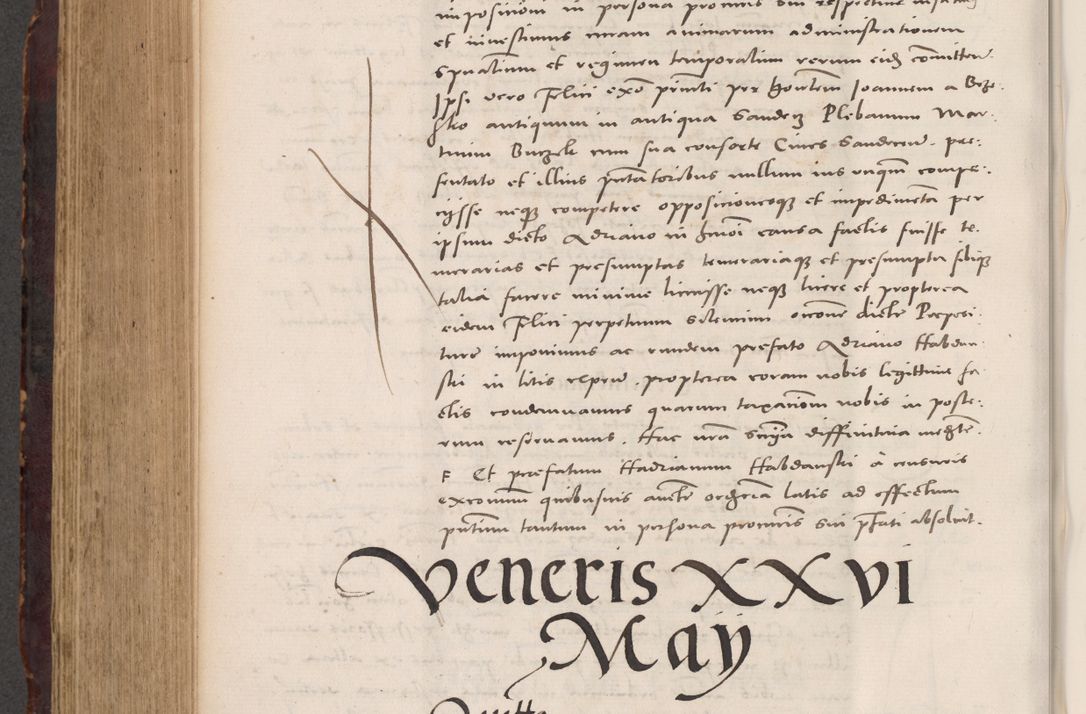 imposicioni in persona procuris sui respective
et investimus curam animarum administrationem
spũalium et regimen temporalium rerum eid comitten.
Ipsi vero Felici ex͠o pñnti per hon̄tem Joannem a Brze-
antiquum in antiqua Sandecz Plebanum Mar-
tinum Buczek cum sua consorte Cives Sandecen. pre-
sentato et illius pñtatoribus nullum ius unq̃m compe-
tysse neq; competere opposicionesq; et impedimēta per
ipsum dicto Adriano in hmōi causa factis fuisse te-
merarias et presumptas temerariaq; et presumpta sibiq;
talia facere minime licuisse neq; licere et propterea
eidem Felici perpetuum silencium dicte Preposi-
ture imponimus ac eundem prefato Adriano Habdan-
ski in litis expen. propterea coram nobis legittime fa-
ctis condemnamus quarum taxacionem nobis in poste-
rum reservamus. Hac nr̄a sn̄ia diffinitiva mediāte.
Et prefatum Hadrianum Habdanski a censuris
excōmum quibusvis aucte ordi͠ria latis ad effectum
pñtium tantum in persona procuris sui p̃fati absolvit.
Veneris XXVI
Maÿ